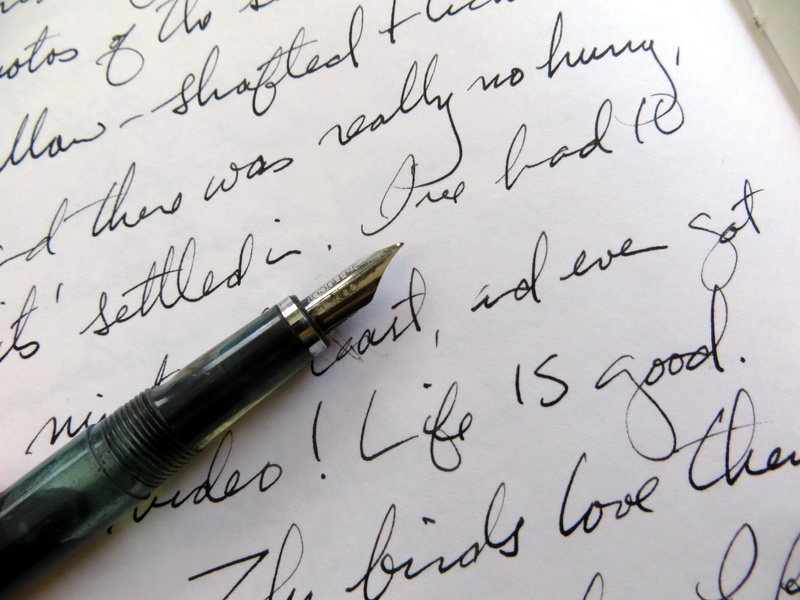 photos of the s
llow-shafted Flick
nd there was really no hurry,
its' settled in. I've had 10
ni east, and even got
video! Life is good.
The birds love them